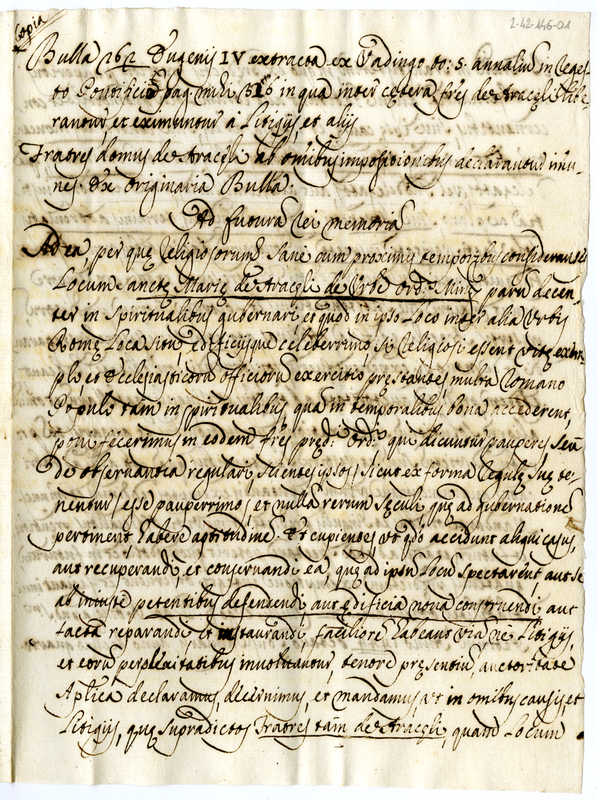 Copia
2-42-146-01
Bulla 262 Eugenij IV extracta ex Vadingo to: 5. annaliũ in Reges-
to Pontificio pag. mihi 316 in qua inter cętera frẽs de Aracęli libe-
rantur, et eximuntur a Litigijs, et alijs
Fratres domus de Aracęli ab omibus impositionibus declarantur imu-
nes. Ex originaria Bulla.
Ad futurã rei memoriã
Ad ea, per quę religiosorum. Sane cum proximis temporibus considerantes
Locum Sanctę Marię de Aracęli de Urbe Ord.s Minor. parum decen
ter in spiritualibus gubernari et quod in ipso Loco inter alia Urbis
Romę Loca situ, edificijsque celeberrimo, si religiosi essent vitę exem-
plo, et Ecclesiasticorũ officiorũ exercitio pręstantes, multa Romano
Populo tam in spiritualibus, quã in temporalibus bona accederent,
poni fecerimus in eodem frẽs pręd.i Ord.s qui dicuntur pauperes, seu
de observantia regulari scientes ipsos, sicut ex forma regulę suę te-
nentur, esse pauperrimos, et nullã rerum sęculi quę ad gubernationẽ
pertinent, habere aptitudinẽ. Et cupientes, ut qdo accidunt aliqui casus,
aut recuperandi, et conservandi ea, quę ad ipsũ Locũ spectarent, aut se
ab iniuste petentibus defendendi, aut ędificia nova construendi, aut
facta reparandi et instaurandi, faciliorẽ habeant viã, ne Litigijs,
et eorũ perplexitatibus involvantur, tenore pręsentiũ, auctoritate
Aplica declaramus, decernimus, et mandamus, ut in omibus causis et
Litigijs, quę supradictos Fratres tam de Aracęli, quam Locum